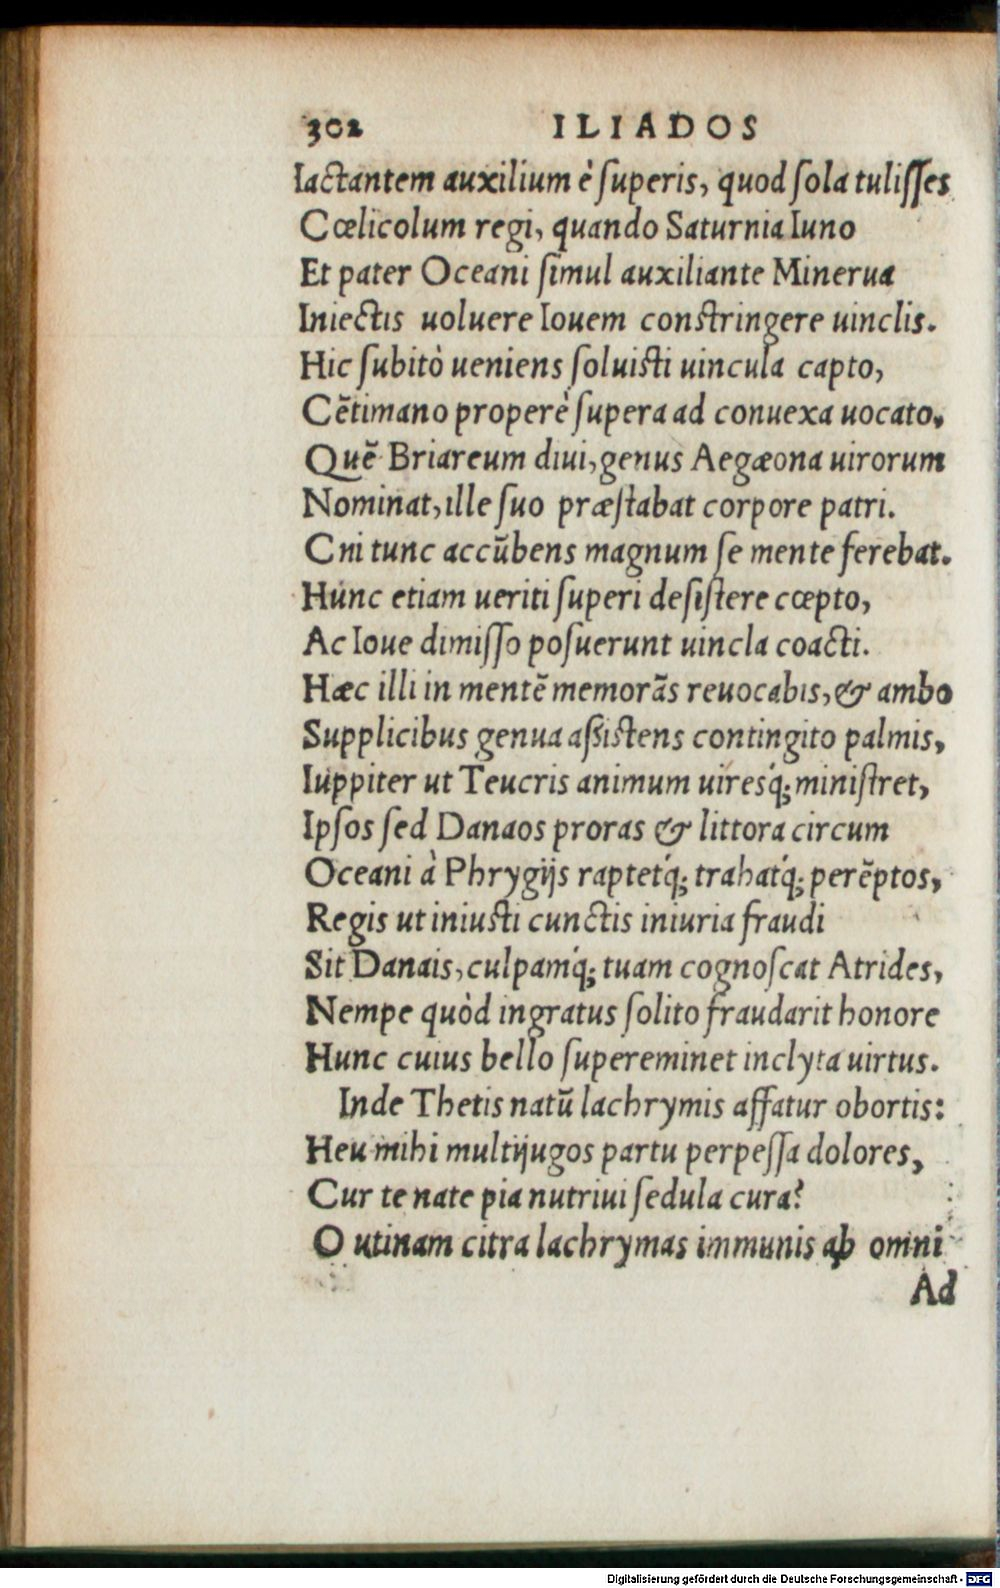 302 ILIADOS
Iactantem auxilium è ſuperis, quod ſola tuliſſes
Cœlicolum regi, quando Saturnia Iuno
Et pater Oceani ſimul auxiliante Minerua
Iniectis uoluere Iouem conſtringere uinclis.
Hic ſubitò ueniens ſoluiſti uincula capto,
Cẽtimano properè ſupera ad conuexa uocato,
Quẽ Briareum diui, genus Aegæona uirorum
Nominat, ille ſuo præſtabat corpore patri.
Cni tunc accũbens magnum ſe mente ferebat.
Hunc etiam ueriti ſuperi deſiſtere cœpto,
Ac Ioue dimiſſo poſuerunt uincla coacti.
Hæc illi in mentẽ memorãs reuocabis, & ambo
Supplicibus genua aßiſtens contingito palmis,
Iuppiter ut Teucris animum uiresq́; miniſtret,
Ipſos ſed Danaos proras & littora circum
Oceani à Phrygijs raptetq́; trahatq́; perẽptos,
Regis ut iniuſti cunctis iniuria fraudi
Sit Danais, culpamq́; tuam cognoſcat Atrides,
Nempe quòd ingratus ſolito fraudarit honore
Hunc cuius bello ſupereminet inclyta uirtus.
Inde Thetis natũ lachrymis affatur obortis:
Heu mihi multijugos partu perpeſſa dolores,
Cur te nate pia nutriui ſedula cura?
O utinam citra lachrymas immunis ab omni
Ad
Digitalisierung gefördert durch die Deutsche Forschungsgemeinschaft - DFG